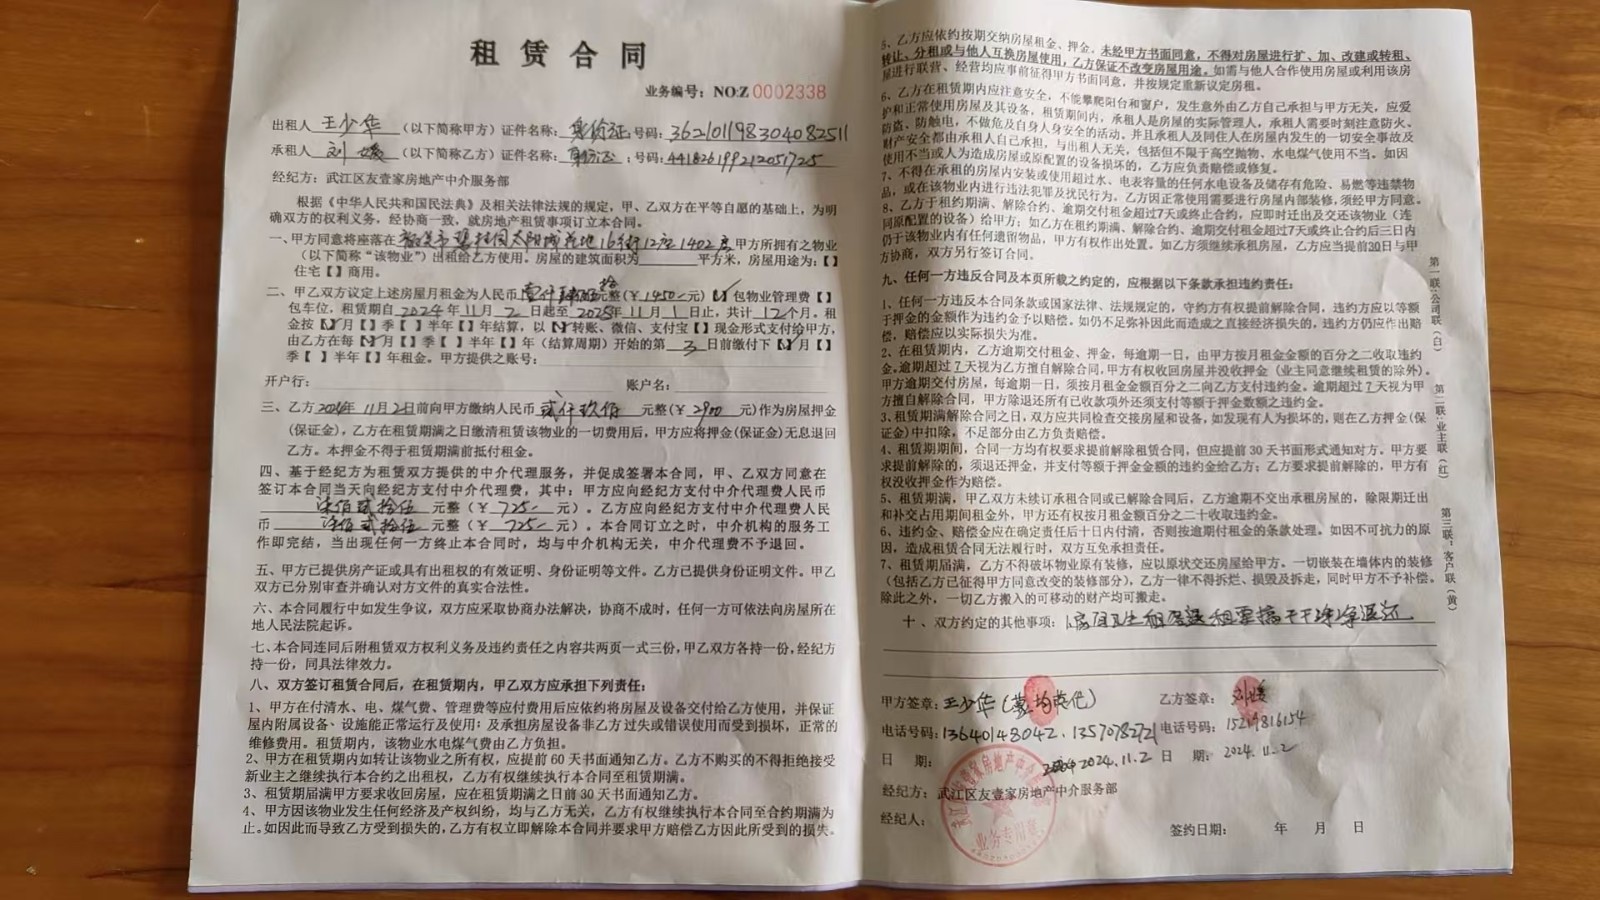 租赁合同
业务编号：NO:Z 0002338
出租人 王少华 （以下简称甲方）证件名称：身份证 号码：362101198304082511
承租人 刘媛 （以下简称乙方）证件名称：身份证；号码：441826199212051725
经纪方：武江区友壹家房地产中介服务部
根据《中华人民共和国民法典》及相关法律法规的规定，甲、乙双方在平等自愿的基础上，为明
确双方的权利义务，经协商一致，就房地产租赁事项订立本合同。
一、甲方同意将座落在 韶关市碧桂园太阳城花地16街12座1402房 甲方所拥有之物业
（以下简称“该物业”）出租给乙方使用。房屋的建筑面积为 平方米，房屋用途为：【】
住宅【】商用。
二、甲乙双方议定上述房屋月租金为人民币 壹仟肆佰伍拾 元整（￥1450-元）【✓】包物业管理费【】
包车位，租赁期自2024年11月2日起至2025年11月1日止，共计12个月。租
金按【✓】月【】季【】半年【】年结算，以【✓】转账、微信、支付宝【】现金形式支付给甲方，
由乙方在每【✓】月【】季【】半年【】年（结算周期）开始的第 3 日前缴付下【✓】月【】
季【】半年【】年租金。甲方提供之账号：
开户行： 账户名：
三、乙方2024年11月2日前向甲方缴纳人民币 贰仟玖佰 元整（￥2900 元）作为房屋押金
（保证金），乙方在租赁期满之日缴清租赁该物业的一切费用后，甲方应将押金(保证金)无息退回
乙方。本押金不得于租赁期满前抵付本租金。
四、基于经纪方为租赁双方提供的中介代理服务，并促成签署本合同，甲、乙双方同意在
签订本合同当天向经纪方支付中介代理费，其中：甲方应向经纪方支付中介代理费人民币
柒佰贰拾伍 元整（￥ 725- 元）。乙方应向经纪方支付中介代理费人民
币 柒佰贰拾伍 元整（￥ 725- 元）。本合同订立之时，中介机构的服务工
作即完结，当出现任何一方终止本合同时，均与中介机构无关，中介代理费不予退回。
五、甲方已提供房产证或具有出租权的有效证明、身份证明等文件。乙方已提供身份证明文件。甲乙
双方已分别审查并确认对方文件的真实合法性。
六、本合同履行中如发生争议，双方应采取协商办法解决，协商不成时，任何一方可依法向房屋所在
地人民法院起诉。
七、本合同连同后附租赁双方权利义务及违约责任之内容共两页一式三份，甲乙双方各持一份，经纪方
持一份，同具法律效力。
八、双方签订租赁合同后，在租赁期内，甲乙双方应承担下列责任：
1、甲方在付清水、电、煤气费、管理费等应付费用后应依约将房屋及设备交付给乙方使用，并保证
屋内附属设备、设施能正常运行及使用；及承担房屋设备非乙方过失或错误使用而受到损坏，正常的
维修费用。租赁期内，该物业水电煤气费由乙方负担。
2、甲方在租赁期内如转让该物业之所有权，应提前60天书面通知乙方。乙方不购买的不得拒绝接受
新业主之继续执行本合约之出租权，乙方有权继续执行本合同至租赁期满。
3、租赁期届满甲方要求收回房屋，应在租赁期满之日前30天书面通知乙方。
4、甲方因该物业发生任何经济及产权纠纷，均与乙方无关，乙方有权继续执行本合同至合约期满为
止。如因此而导致乙方受到损失的，乙方有权立即解除本合同并要求甲方赔偿乙方因此所受到的损失。
5、乙方应依约按期交纳房屋租金、押金。未经甲方书面同意，不得对房屋进行扩、加、改建或转租、
转让、分租或与他人互换房屋使用，乙方保证不改变房屋用途。如需与他人合作使用房屋或利用该房
屋进行联营、经营均应事前征得甲方书面同意，并按规定重新议定房租。
6、乙方在租赁期内应注意安全，不能攀爬阳台和窗户，发生意外由乙方自己承担与甲方无关，应爱
护和正常使用房屋及其设备，租赁期间内，承租人是房屋的实际管理人，承租人需要时刻注意防火、
防盗、防触电，不做危及自身人身安全的活动。并且承租人及同住人在房屋内发生的一切安全事故及
财产安全都由承租人自己承担，与出租人无关，包括但不限于高空抛物、水电煤气使用不当。如因
使用不当或人为造成房屋或原配置的设备损坏的，乙方应负责赔偿或修复。
7、不得在承租的房屋内安装或使用超过水、电表容量的任何水电设备及储存有危险、易燃等违禁物
品，或在该物业内进行违法犯罪及扰民行为。乙方因正常使用需要进行房屋内部装修，须经甲方同意。
8、乙方于租约期满、解除合约、逾期交付租金超过7天或终止合约，应即时迁出及交还该物业（连
同原配置的设备）给甲方；如乙方在租约期满、解除合约、逾期交付租金超过7天或终止合约后三日内
仍于该物业内有任何遗留物品，甲方有权作出处置。如乙方须继续承租房屋，乙方应当提前30日与甲
方协商，双方另行签订合同。
九、任何一方违反合同及本页所载之约定的，应根据以下条款承担违约责任：
1、任何一方违反本合同条款或国家法律、法规规定的，守约方有权提前解除合同，违约方应以等额
于押金的金额作为违约金予以赔偿。如仍不足弥补因此而造成之直接经济损失的，违约方仍应作出赔
偿，赔偿应以实际损失为准。
2、在租赁期内，乙方逾期交付租金、押金，每逾期一日，由甲方按月租金金额的百分之二收取违约
金。逾期超过7天视为乙方擅自解除合同，甲方有权收回房屋并没收押金（业主同意继续租赁的除外）。
甲方逾期交付房屋，每逾期一日，须按月租金金额百分之二向乙方支付违约金。逾期超过7天视为甲
方擅自解除合同，甲方除退还所有已收款项外还须支付等额于押金数额之违约金。
3、租赁期满解除合同之日，双方应共同检查交接房屋和设备，如发现有人为损坏的，则在乙方押金(保
证金)中扣除，不足部分由乙方负责赔偿。
4、租赁期期间，合同一方均有权要求提前解除租赁合同，但应提前30天书面形式通知对方。甲方要
求提前解除的，须退还押金，并支付等额于押金金额的违约金给乙方；乙方要求提前解除的，甲方有
权没收押金作为赔偿。
5、租赁期满，甲乙双方未续订承租合同或已解除合同后，乙方逾期不交出承租房屋的，除限期迁出
和补交占用期间租金外，甲方还有权按月租金额百分之二十收取违约金。
6、违约金、赔偿金应在确定责任后十日内付清，否则按逾期付租金的条款处理。如因不可抗力的原
因，造成租赁合同无法履行时，双方互免承担责任。
7、租赁期届满，乙方不得破坏物业原有装修，应以原状交还房屋给甲方。一切嵌装在墙体内的装修
（包括乙方已征得甲方同意改变的装修部分），乙方一律不得拆烂、损毁及拆走，同时甲方不予补偿。
除此之外，一切乙方搬入的可移动的财产均可搬走。
十、双方约定的其他事项：房间卫生租房退租要搞干干净净退还
甲方签章：王少华 乙方签章：刘媛
电话号码：13640148042、13570782721 电话号码：15219816154
日 期： 2024.11.2 日 期：2024.11.2
经纪方：武江区友壹家房地产中介服务部
经纪人：
签约日期： 年 月 日
业务专用章
第一联：公司联（白）
第二联：业主联（红）
第三联：客户联（黄）